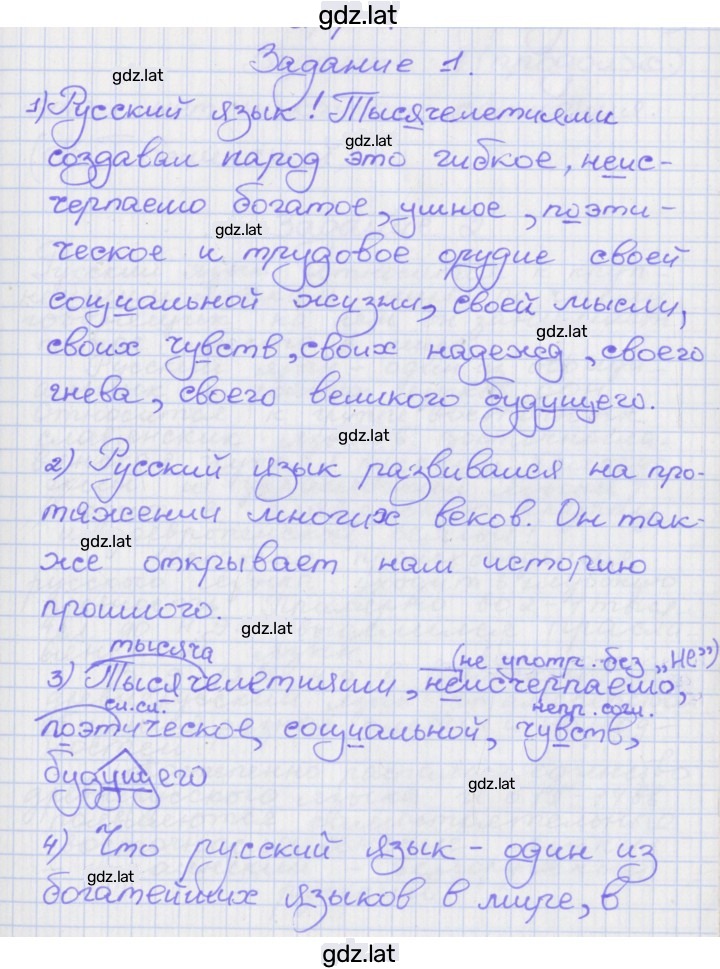 gdz.lat
Задание 1.
gdz.lat
1) Русский язык! Тысячелетиями
gdz.lat
создавал народ это гибкое, неис-
черпаемо богатое, умное, поэти-
gdz.lat
ческое и трудовое орудие своей
социальной жизни, своей мысли,
gdz.lat
своих чувств, своих надежд, своего
гнева, своего великого будущего.
gdz.lat
2) Русский язык развивался на про-
тяжении многих веков. Он так-
gdz.lat
же открывает нам историю
прошлого.
gdz.lat
тысяча (не употр. без „не")
3) Тысячелетиями, неисчерпаемо,
сл.сл. непр. согл.
поэтическое, социальной, чувств,
будущего
gdz.lat
4) Что русский язык - один из
gdz.lat
богатейших языков в мире, в
gdz.lat